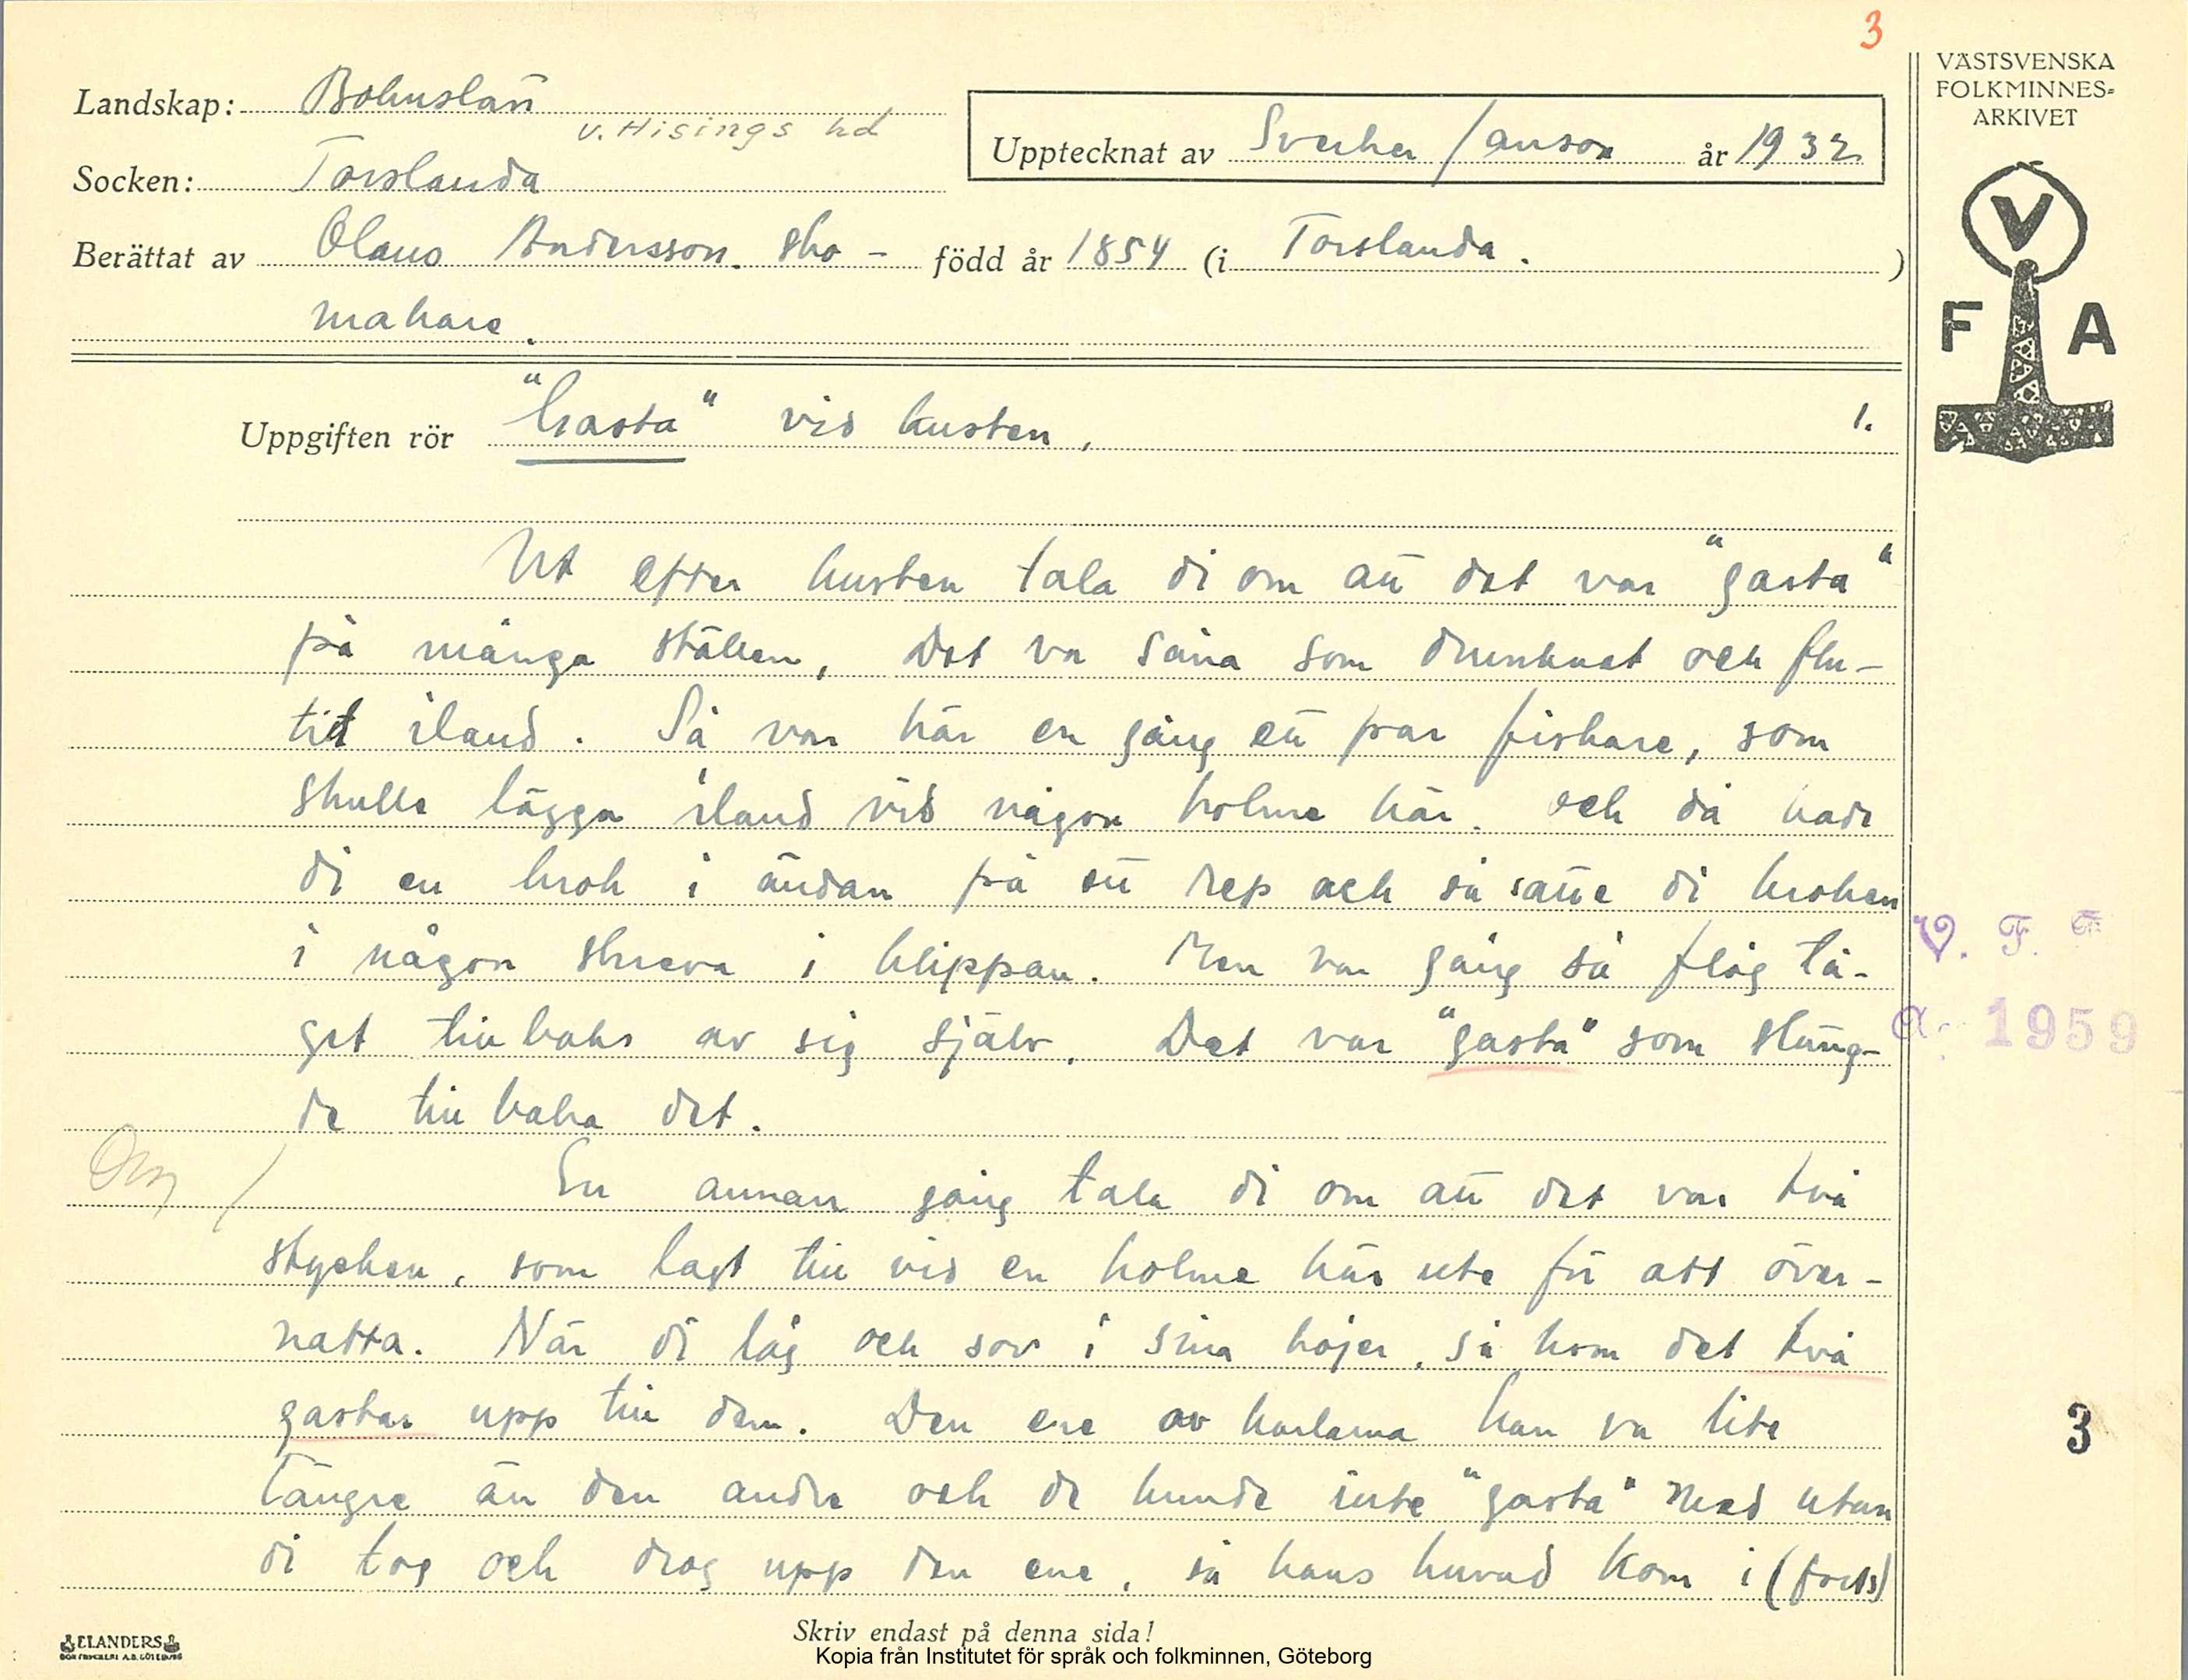 3
VÄSTSVENSKA
FOLKMINNES-
ARKIVET
Landskap: Bohuslän
v. Hisings hd
Upptecknat av Sverker Janson år 1932
Socken: Torslanda
Berättat av Olaus Andersson. sko- född år 1854 (i Torslanda. )
makare.
V
F A
Uppgiften rör "Gasta" vid kusten, 1.
Ut efter kusten tala di om att det var "gasta"
på många ställen, Det va såna som drunknat och flu-
tit iland. Så var här en gång ett par fiskare, som
skulle lägga iland vid någon holme här. och då hade
di en krok i ändan på ett rep och så satte di kroken
i någon skreva i klippan. Men var gång så flög tå-
get tillbaks av sig själv. Det var "gasta" som släng-
de tillbaka det.
En annan gång tala di om att det var två
stycken, som lagt till vid en holme här ute för att över-
natta. När di låg och sov i sina kojer, så kom det två
gastar upp till dem. Den ene av karlarna han va lite
längre än den andre och de kunde inte "gasta" med utan
di tog och drog upp den ene, så hans huvud kom i (forts)
V. F. F
a. 1959
3
Skriv endast på denna sida!
ELANDERS
BOKTRYCKERI A.B. GÖTEBORG
Kopia från Institutet för språk och folkminnen, Göteborg